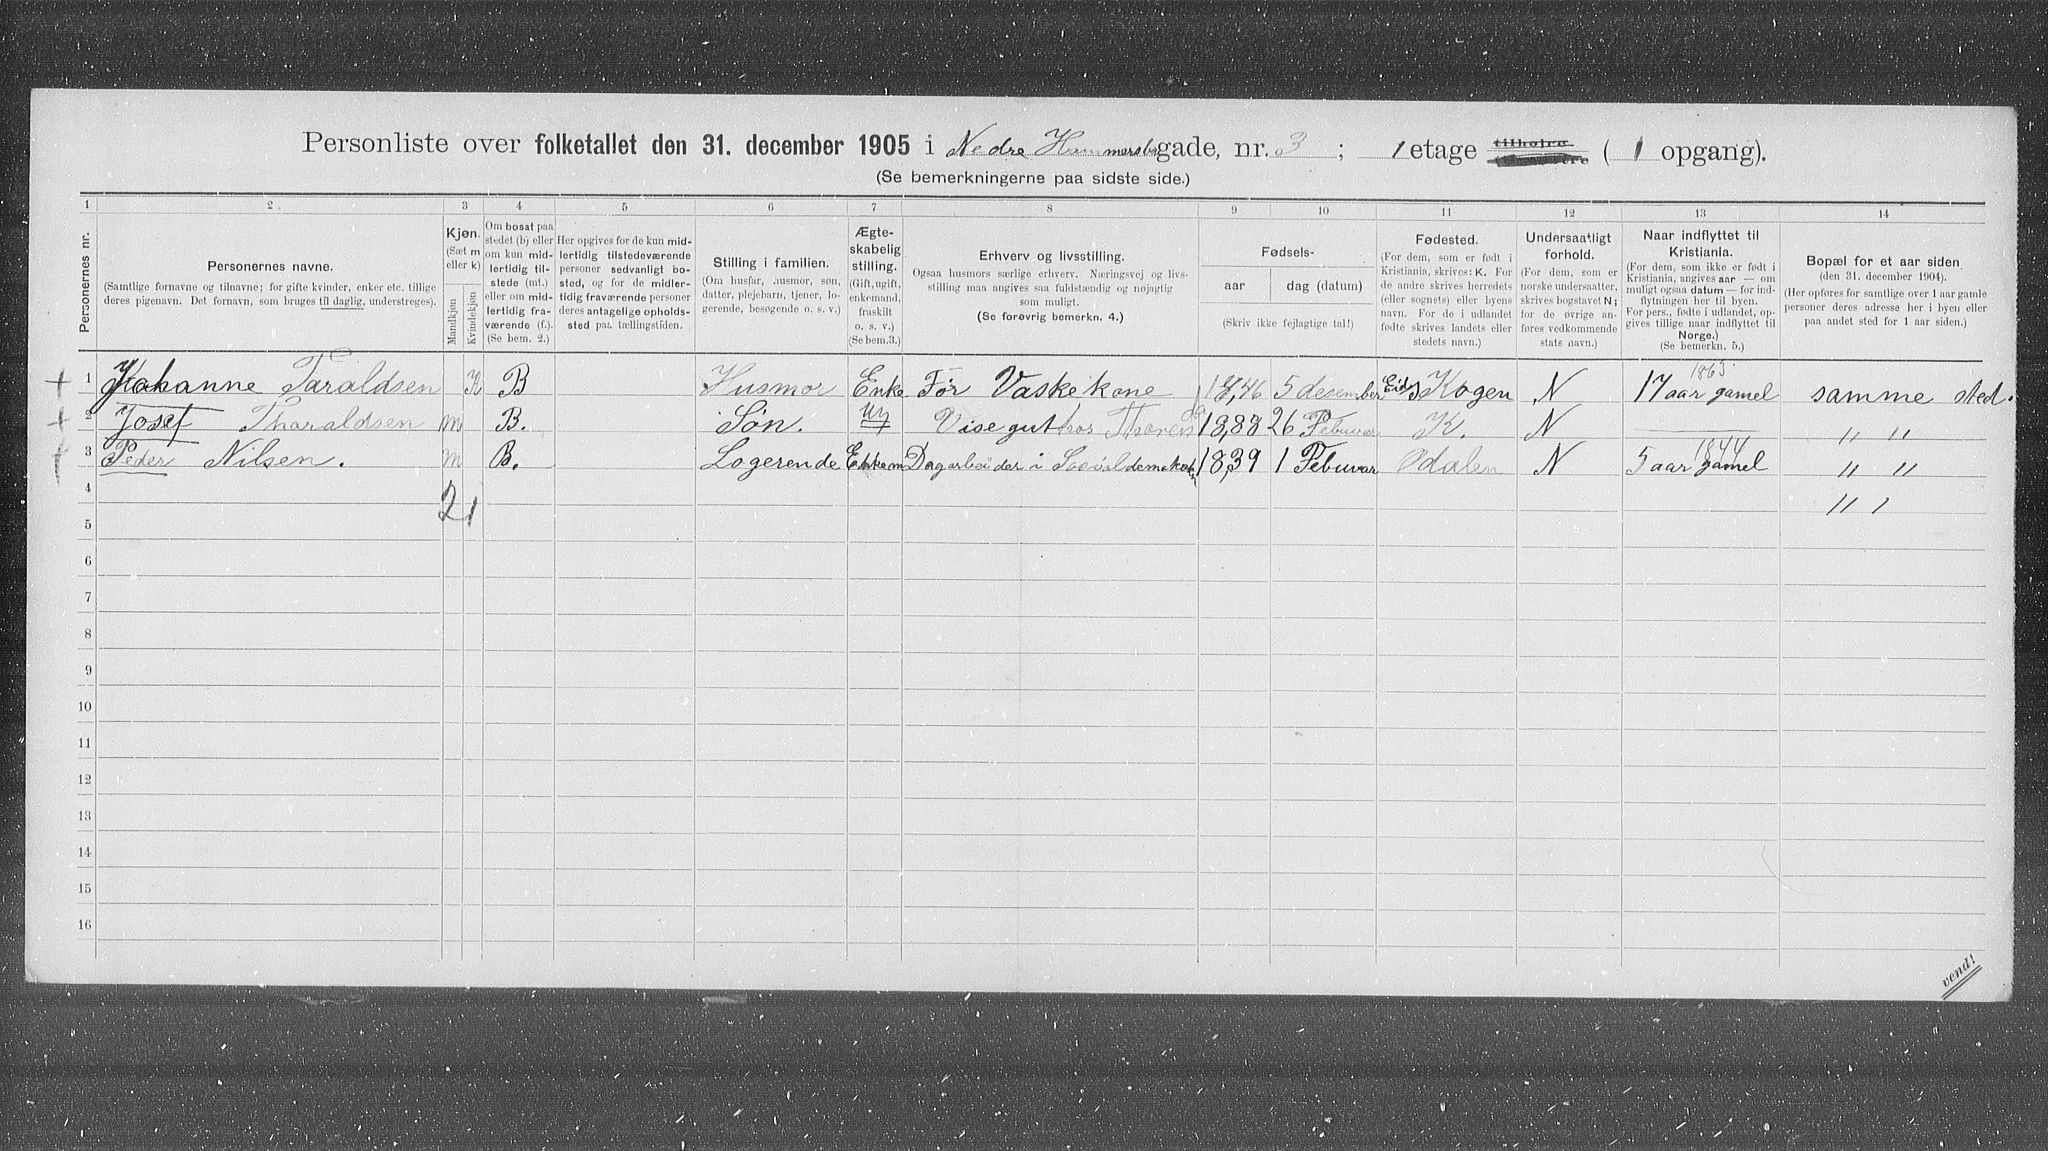 Personliste over folketallet den 31. december 1905 i Nedre Hammersb gade, nr. 3 ; 1 etage tilhøjre ( 1 opgang).
(Se bemerkningerne paa sidste side.)
1 2 3 4 5 6 7 8 9 10 11 12 13 14
Personernes nr.
Personernes navne.
(Samtlige fornavne og tilnavne; for gifte kvinder, enker etc. tillige
deres pigenavn. Det fornavn, som bruges til daglig, understreges).
Kjøn.
(Sæt m
eller k)
Mandkjøn
Kvindekjøn
Om bosat paa
stedet (b) eller
om kun mid-
lertidig til-
stede (mt.)
eller om mid-
lertidig fra-
værende (f.)
(Se bem. 2.)
Her opgives for de kun mid-
lertidig tilstedeværende
personer sedvanligt bo-
sted, og for de midler-
tidig fraværende personer
deres antagelige opholds-
sted paa tællingstiden.
Stilling i familien.
(Om husfar, husmor, søn,
datter, plejebarn, tjener, lo-
gerende, besøgende o. s. v.)
Ægte-
skabelig
stilling.
(Gift, ugift,
enkemand,
fraskilt
o. s. v.)
(Se bem.3.)
Erhverv og livsstilling.
Ogsaa husmors særlige erhverv. Næringsvej og livs-
stilling maa angives saa fuldstændig og nøjagtig
som muligt.
(Se forøvrig bemerkn. 4.)
Fødsels-
aar dag (datum)
(Skriv ikke fejlagtige tal!)
Fødested.
(For dem, som er født i
Kristiania, skrives: K. For
de andre skrives herredets
(eller sognets) eller byens
navn. For de i udlandet
fødte skrives landets eller
stedets navn.)
Undersaatligt
forhold.
(For dem, som er
norske undersaatter,
skrives bogstavet N;
for de øvrige an-
føres vedkommende
stats navn.)
Naar indflyttet til
Kristiania.
(For dem, som ikke er født i
Kristiania, angives aar — om
muligt ogsaa datum — for ind-
flytningen her til byen.
For pers., fødte i udlandet, op-
gives tillige naar indflyttet til
Norge.)
(Se bemerkn. 5.)
Bopæl for et aar siden
(den 31. december 1904).
(Her opføres for samtlige over 1 aar gamle
personer deres adresse her i byen eller
paa andet sted for 1 aar siden.)
1865
+ 1 Johanne Taraldsen K B Husmor Enke Før Vaskekone 1846 5 desember Eidskogen N 17 aar gamel samme sted.
+ 2 Josef Tharaldsen m B. Søn. ug Visegut hos 1888 26 Febuvar K. N — " "
1844
+ 3 Peder Nilsen. m B. Logerende Enkem Dagarbeider i 1839 1 Febuvar Odalen N 5 aar gamel " "
4 2 1 " "
5
6
7
8
9
10
11
12
13
14
15
16
vend!